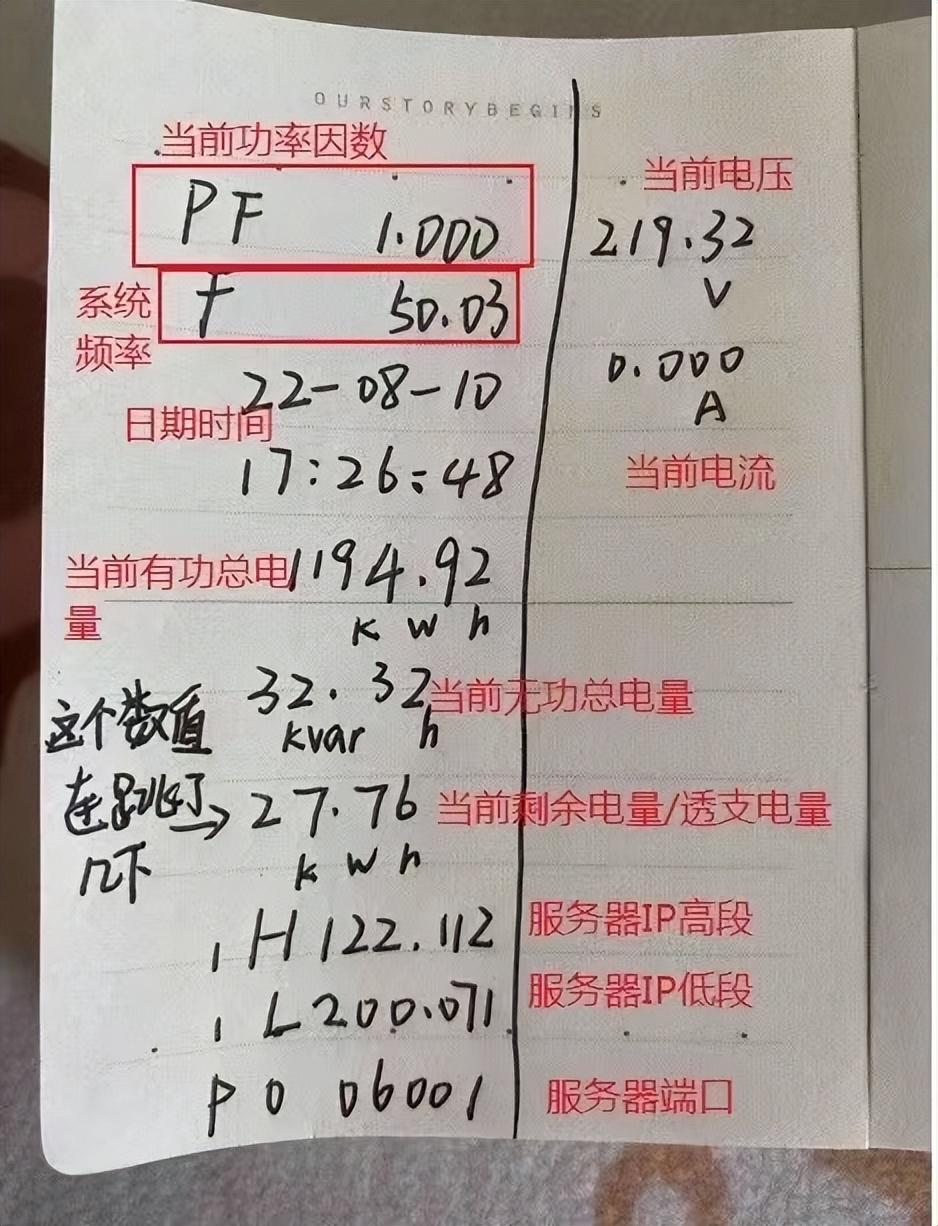 OURSTORYBEGINS
当前功率因数
PF 1.000
系统
频率
F 50.03
22-08-10
日期时间
17:26:48
当前有功总电
量
1194.92
kwh
32.32
kvar h
当前无功总电量
这个数值
连跳好了
几下
→27.76
kwh
当前剩余电量/透支电量
IH122.112
服务器IP高段
IL200.071
服务器IP低段
PO 06001
服务器端口
当前电压
219.32
V
0.000
A
当前电流